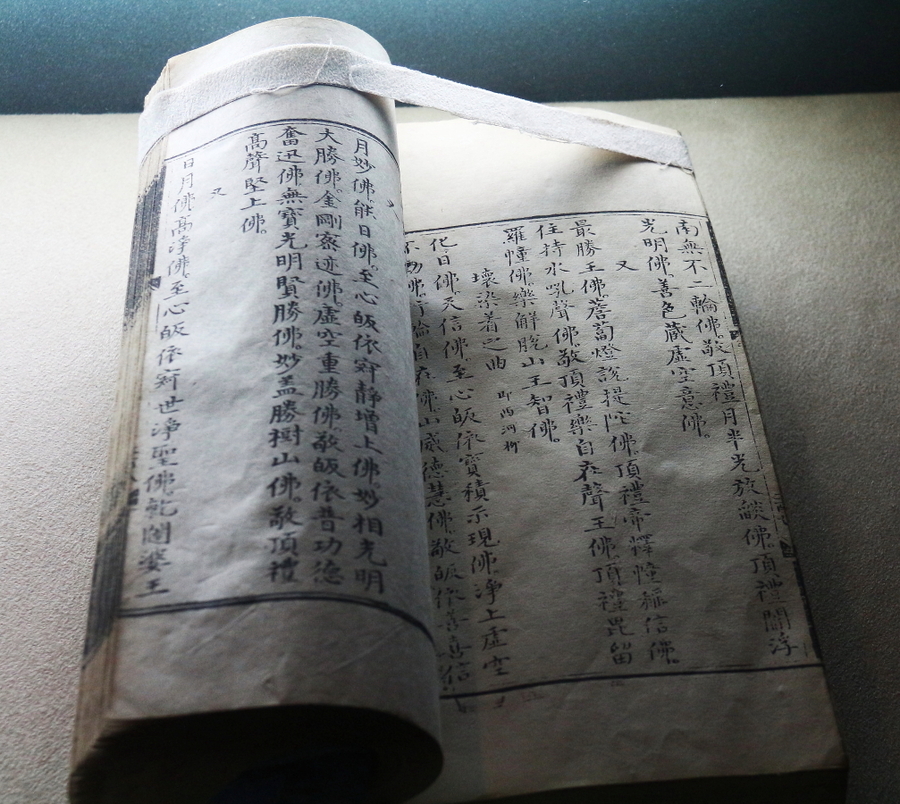 南無不二輪佛。敬頂禮月半光放燄佛。頂禮閻浮
光明佛。善色蔵虛空意佛。
又
最勝王佛。薝蔔燈說提陀佛。頂禮帝釋幢稱信佛。
住持水吼聲佛。敬頂禮樂自在聲王佛。頂禮毘留
羅幢佛。樂解脫山王智佛。
壞染着之曲 即西河柳
化日佛。天信佛。至心皈依寶積示現佛。淨上虛空
佛。山威德慧佛。敬皈依善喜信
月妙佛。能日佛。至心皈依寂靜增上佛。妙相光明
大勝佛。金剛密迹佛。虛空重勝佛。敬皈依普功德
奮迅佛。無寶光明賢勝佛。妙盖勝樹山佛。敬頂禮
高聲堅上佛。
又
日月佛。高淨佛。至心皈依寂世淨聖佛。乾闥婆王